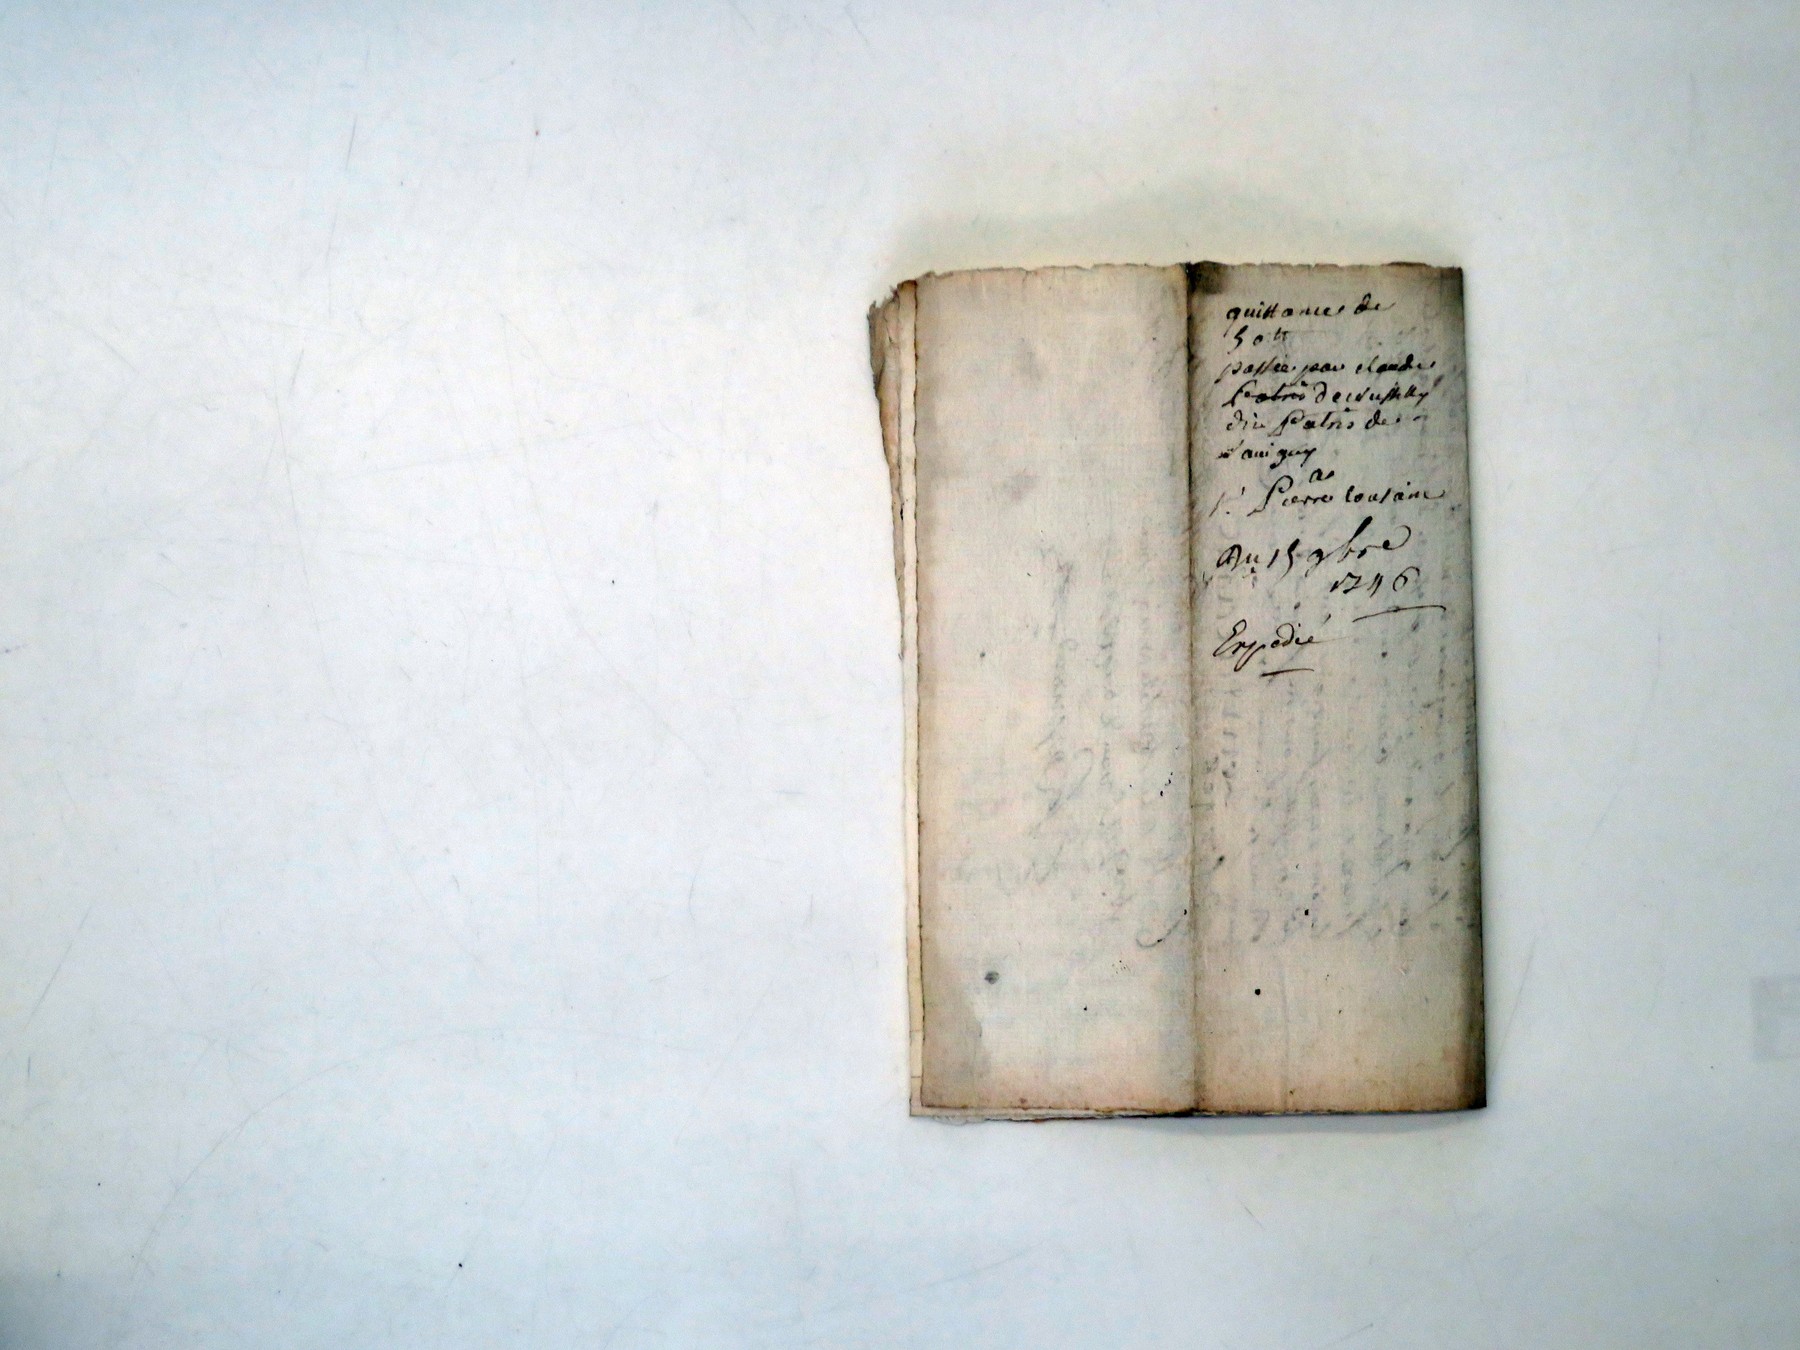 quittance de
50 tt
passée par claude
Patris de
dit Patris de
a
sr Pierre cousain
Du 15 9bre
1746
Expedié